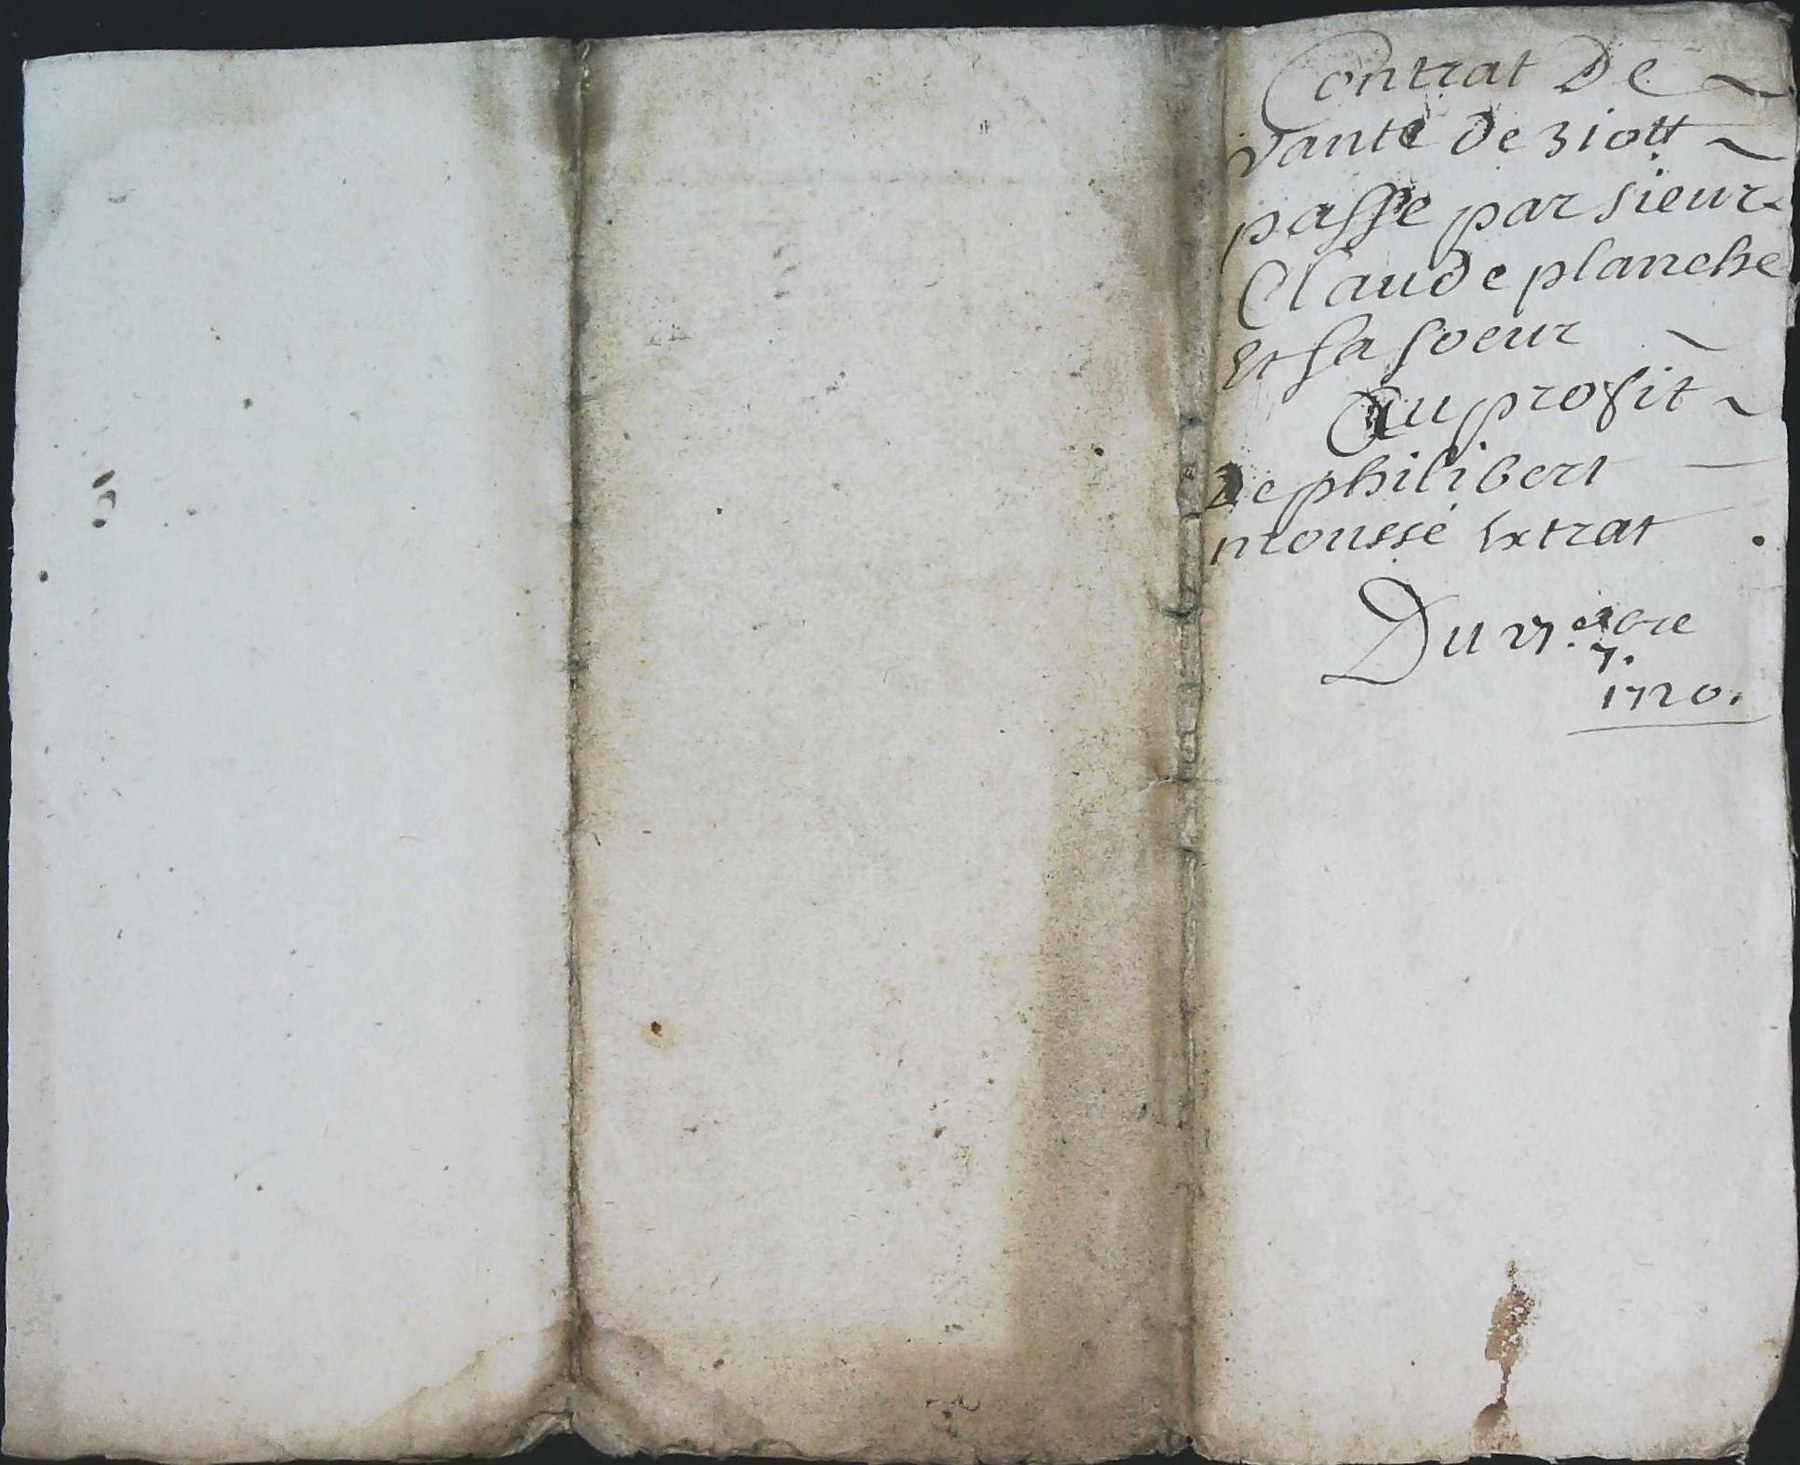 Contrat De ~
vante de 310tt ~
passe par sieur
Claude planche
Et sa soeur ~
Au profit ~
De philibert
mousse Extrat .
Du 27.e 7.bre
1720.